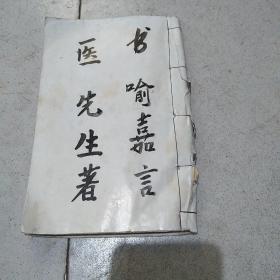 书喻嘉言
医先生著